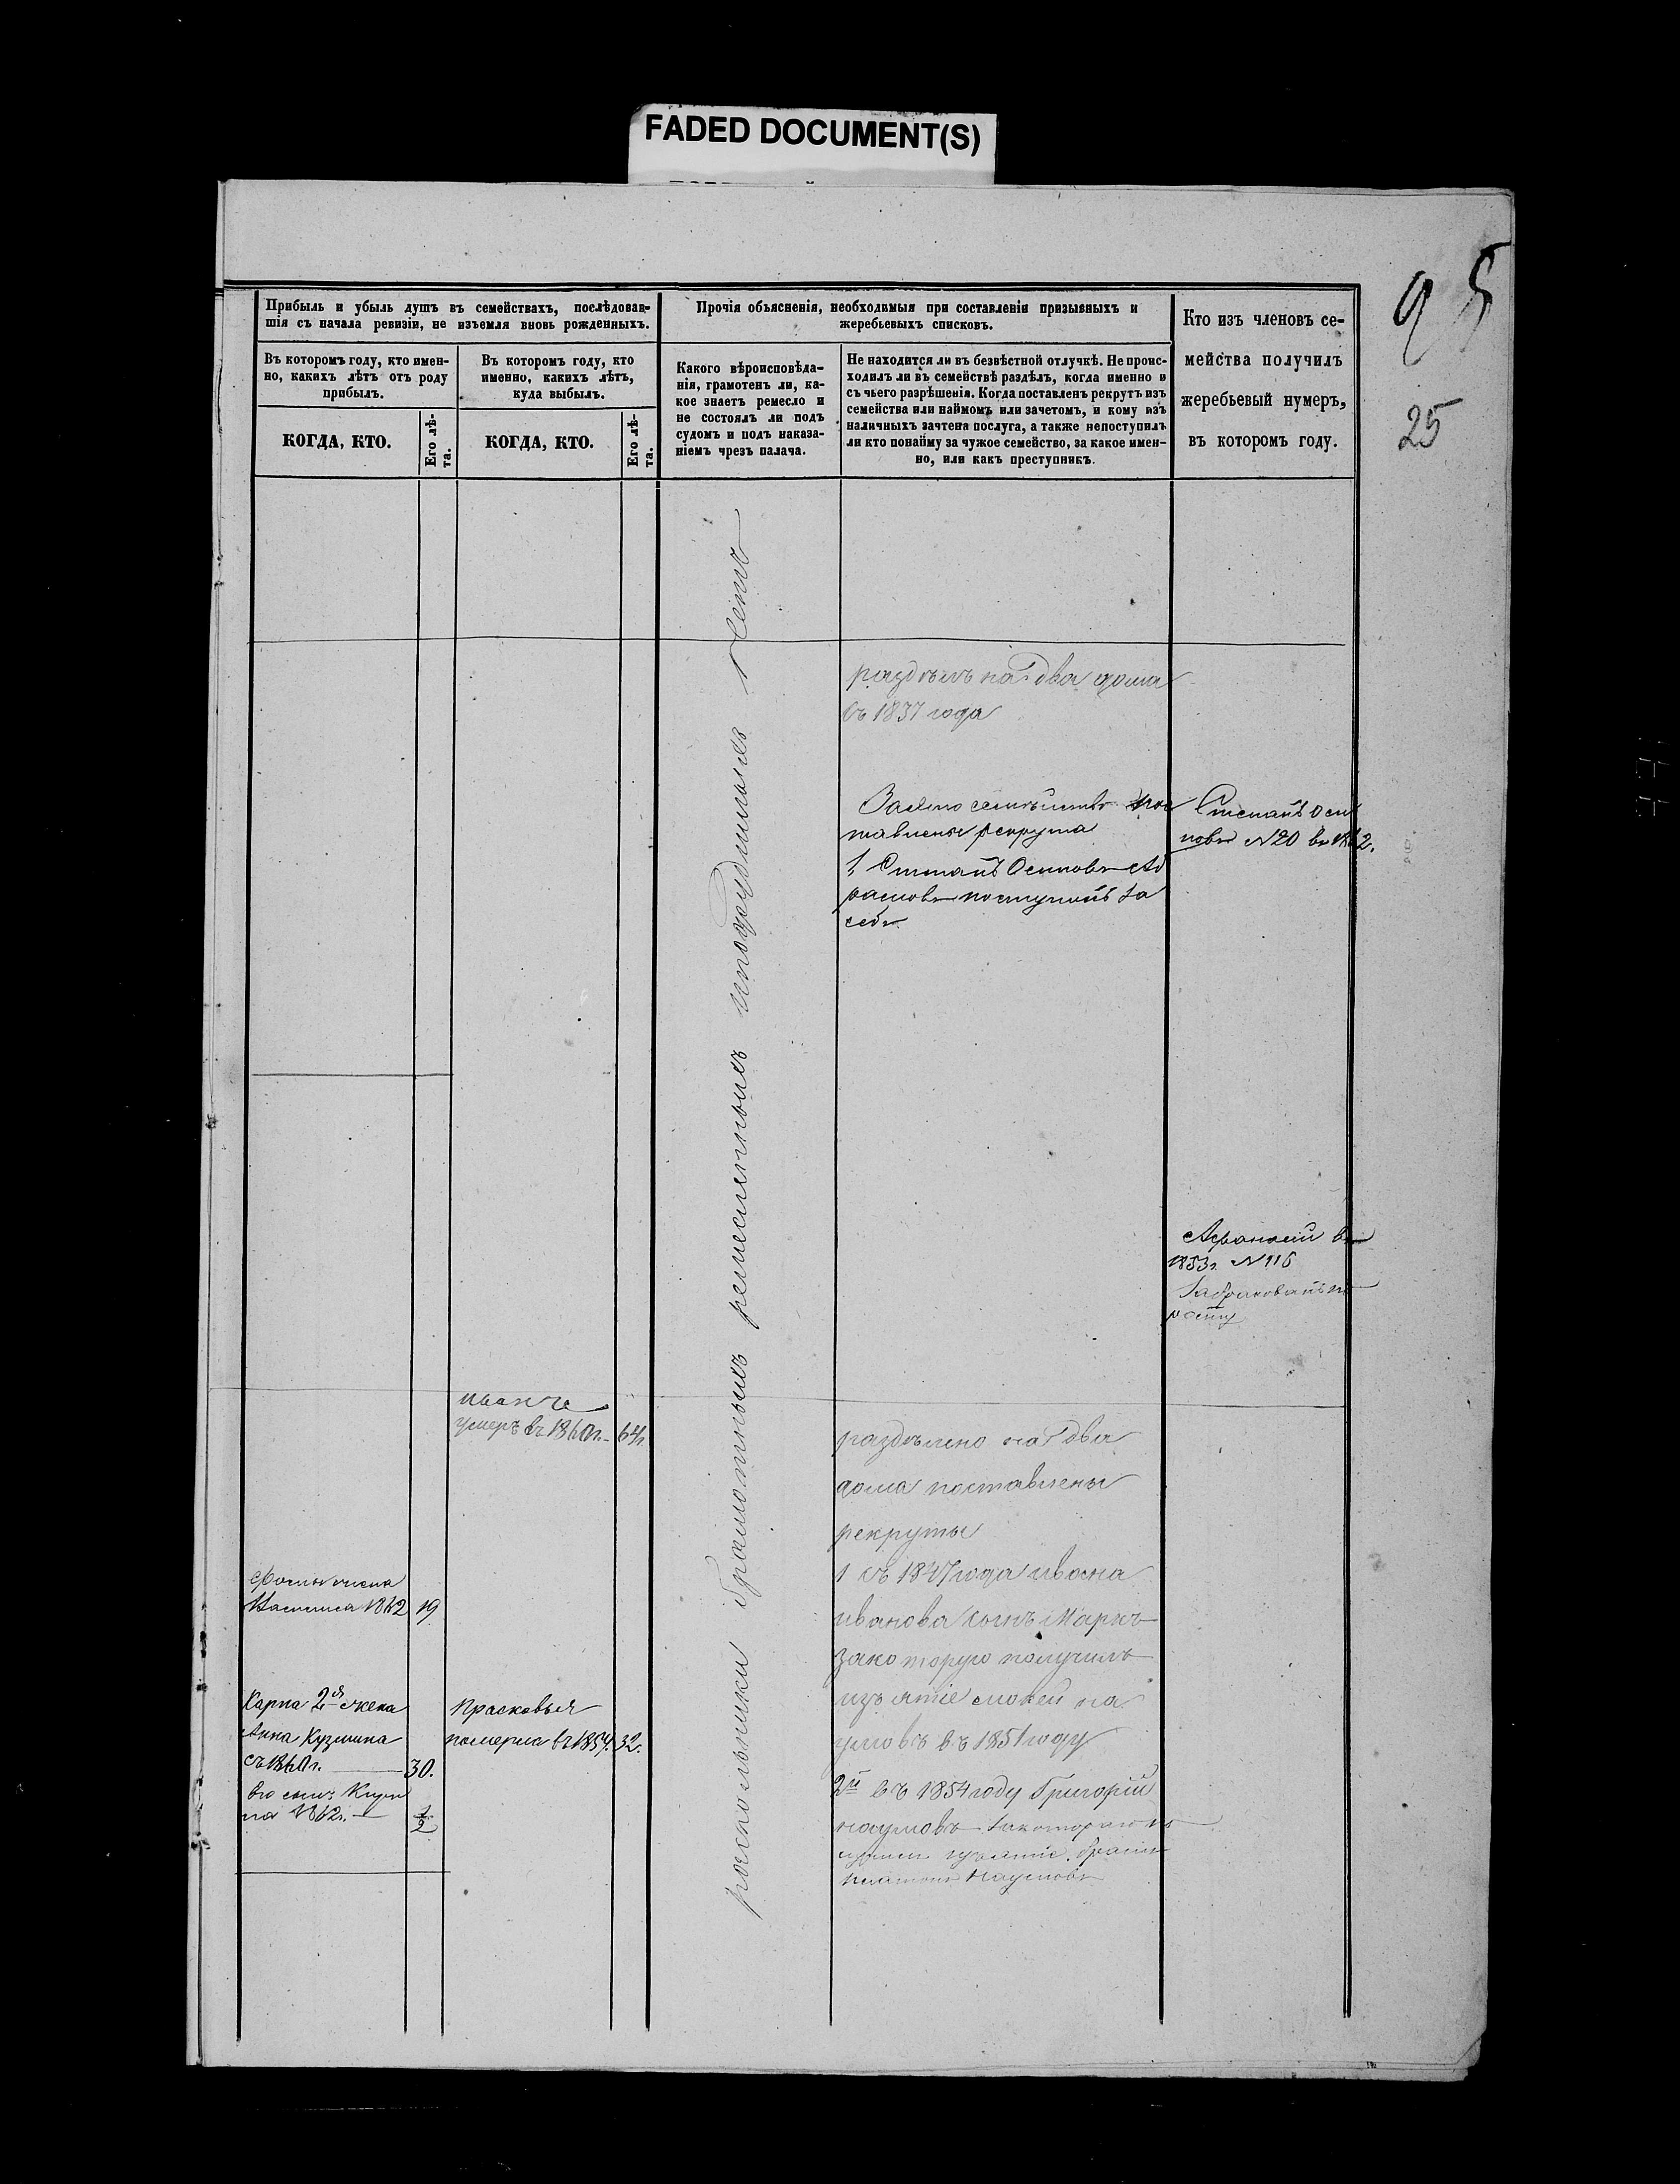 FADED DOCUMENT(S)
95
25
Прибыль и убыль душъ въ семействахъ, послѣдовав-
шія съ начала ревизіи, не изъемля вновь рожденныхъ.
Прочія объясненія, необходимыя при составленіи призывныхъ и
жеребьевыхъ списковъ.
Кто изъ членовъ се-
мейства получилъ
жеребьевый нумеръ,
въ которомъ году.
Въ которомъ году, кто имен-
но, какихъ лѣтъ отъ роду
прибылъ.
Въ которомъ году, кто
именно, какихъ лѣтъ,
куда выбылъ.
Какого вѣроисповѣда-
нія, грамотенъ ли, ка-
кое знаетъ ремесло и
не состоялъ ли подъ
судомъ и подъ наказа-
ніемъ чрезъ палача.
Не находится ли въ безвѣстной отлучкѣ. Не проис-
ходилъ ли въ семействѣ раздѣлъ, когда именно и
съ чьего разрѣшенія. Когда поставленъ рекрутъ изъ
семейства или наймомъ или зачетомъ, и кому изъ
наличныхъ зачтена послуга, а также непоступилъ
ли кто понайму за чужое семейство, за какое имен-
но, или какъ преступникъ.
КОГДА, КТО.
Его лѣ-
та.
КОГДА, КТО.
Его лѣ-
та.
раскольники грамотныхъ ремесленныхъ иподсудимыхъ нетъ
раздѣлъ на два дома
съ 1837 года
семѣйство пос
тавлены рекрута
1, Степанъ Осиповъ
поступилъ за
себя
Степанъ Оси
повъ N 20 въ 1862.
Афанасий въ
1853г. N 116
Забракованъ по
росту
Иванъ
умеръ въ 1860г. 64г.
раздѣлено на два
дома поставлены
рекруты
1 съ 1847 года ивана
иванова сынъ Маркъ
закоторую получилъ
изъятие мокей на
умовъ въ 1851 году
2й въ 1854 году Григорий
наумовъ закотораго по
изъятие братъ
платонъ Наумовъ
жена
1862 19
Карпа 2я жена
Анна Кузмина
съ 1860г. 30.
Его сынъ
на 1862г. 1/2
Прасковья
померла въ 1857. 32.